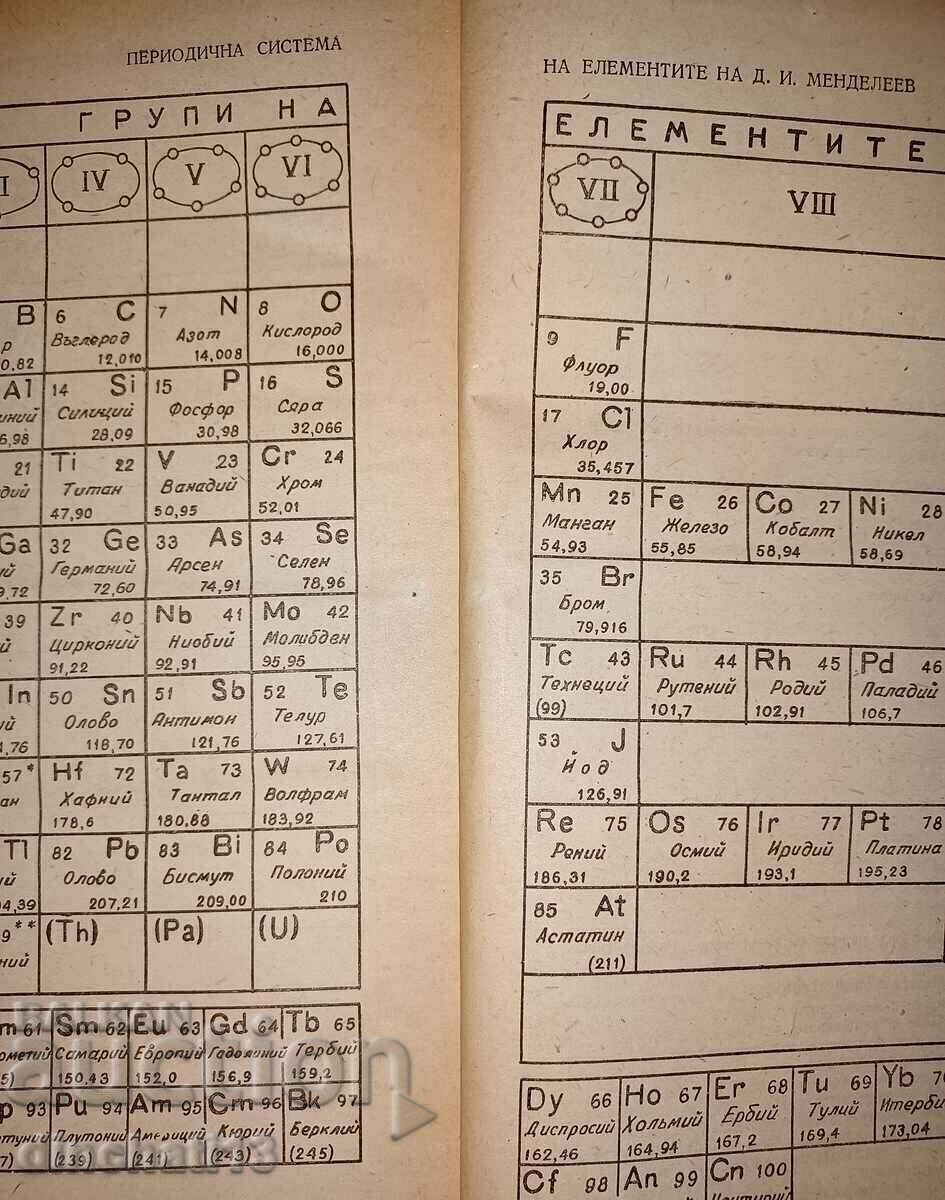 ПЕРИОДИЧНА СИСТЕМА
ГРУПИ НА
I IV V VI
B 6 C 7 N 8 O
р Въглерод Азот Кислород
0,82 12,010 14,008 16,000
Al 14 Si 15 P 16 S
иний Силиций Фосфор Сяра
6,98 28,09 30,98 32,066
21 Ti 22 V 23 Cr 24
дий Титан Ванадий Хром
47,90 50,95 52,01
Ga 32 Ge 33 As 34 Se
ий Германий Арсен Селен
9,72 72,60 74,91 78,96
39 Zr 40 Nb 41 Mo 42
й Цирконий Ниобий Молибден
91,22 92,91 95,95
In 50 Sn 51 Sb 52 Te
ий Олово Антимон Телур
1,76 118,70 121,76 127,61
57* Hf 72 Ta 73 W 74
ан Хафний Тантал Волфрам
178,6 180,88 183,92
Tl 82 Pb 83 Bi 84 Po
ий Олово Бисмут Полоний
04,39 207,21 209,00 210
9** (Th) (Pa) (U)
ний
m 61 Sm 62 Eu 63 Gd 64 Tb 65
ометий Самарий Европий Гадолиний Тербий
5) 150,43 152,0 156,9 159,2
p 93 Pu 94 Am 95 Cm 96 Bk 97
птуний Плутоний Америций Кюрий Берклий
7) (239) (241) (243) (245)
НА ЕЛЕМЕНТИТЕ НА Д. И. МЕНДЕЛЕЕВ
ЕЛЕМЕНТИТЕ
VII VIII
9 F
Флуор
19,00
17 Cl
Хлор
35,457
Mn 25 Fe 26 Co 27 Ni 28
Манган Железо Кобалт Никел
54,93 55,85 58,94 58,69
35 Br
Бром
79,916
Tc 43 Ru 44 Rh 45 Pd 46
Технеций Рутений Родий Паладий
(99) 101,7 102,91 106,7
53 J
Йод
126,91
Re 75 Os 76 Ir 77 Pt 78
Рений Осмий Иридий Платина
186,31 190,2 193,1 195,23
85 At
Астатин
(211)
Dy 66 Ho 67 Er 68 Tu 69 Yb 70
Диспросий Холмий Ербий Тулий Итерби
162,46 164,94 167,2 169,4 173,04
Cf 98 An 99 Cn 100
BALKAN
auction